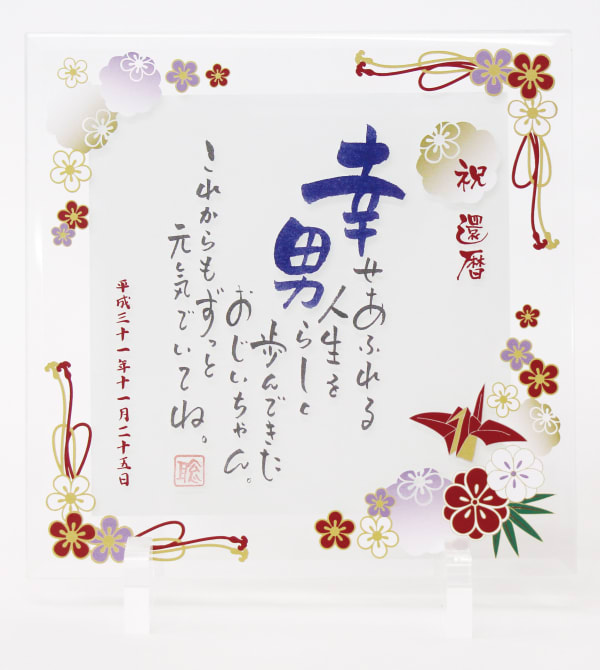 祝 還暦
幸せあふれる
人生を
男らしく
歩んできた
おじいちゃん。
これからもずっと
元気でいてね。
平成三十一年十一月二十五日
聡